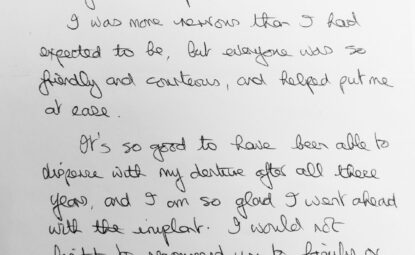 I was more nervous than I had
expected to be, but everyone was so
friendly and courteous, and helped put me
at ease.
It's so good to have been able to
dispense with my denture after all these
years, and I am so glad I went ahead
with the implant. I would not